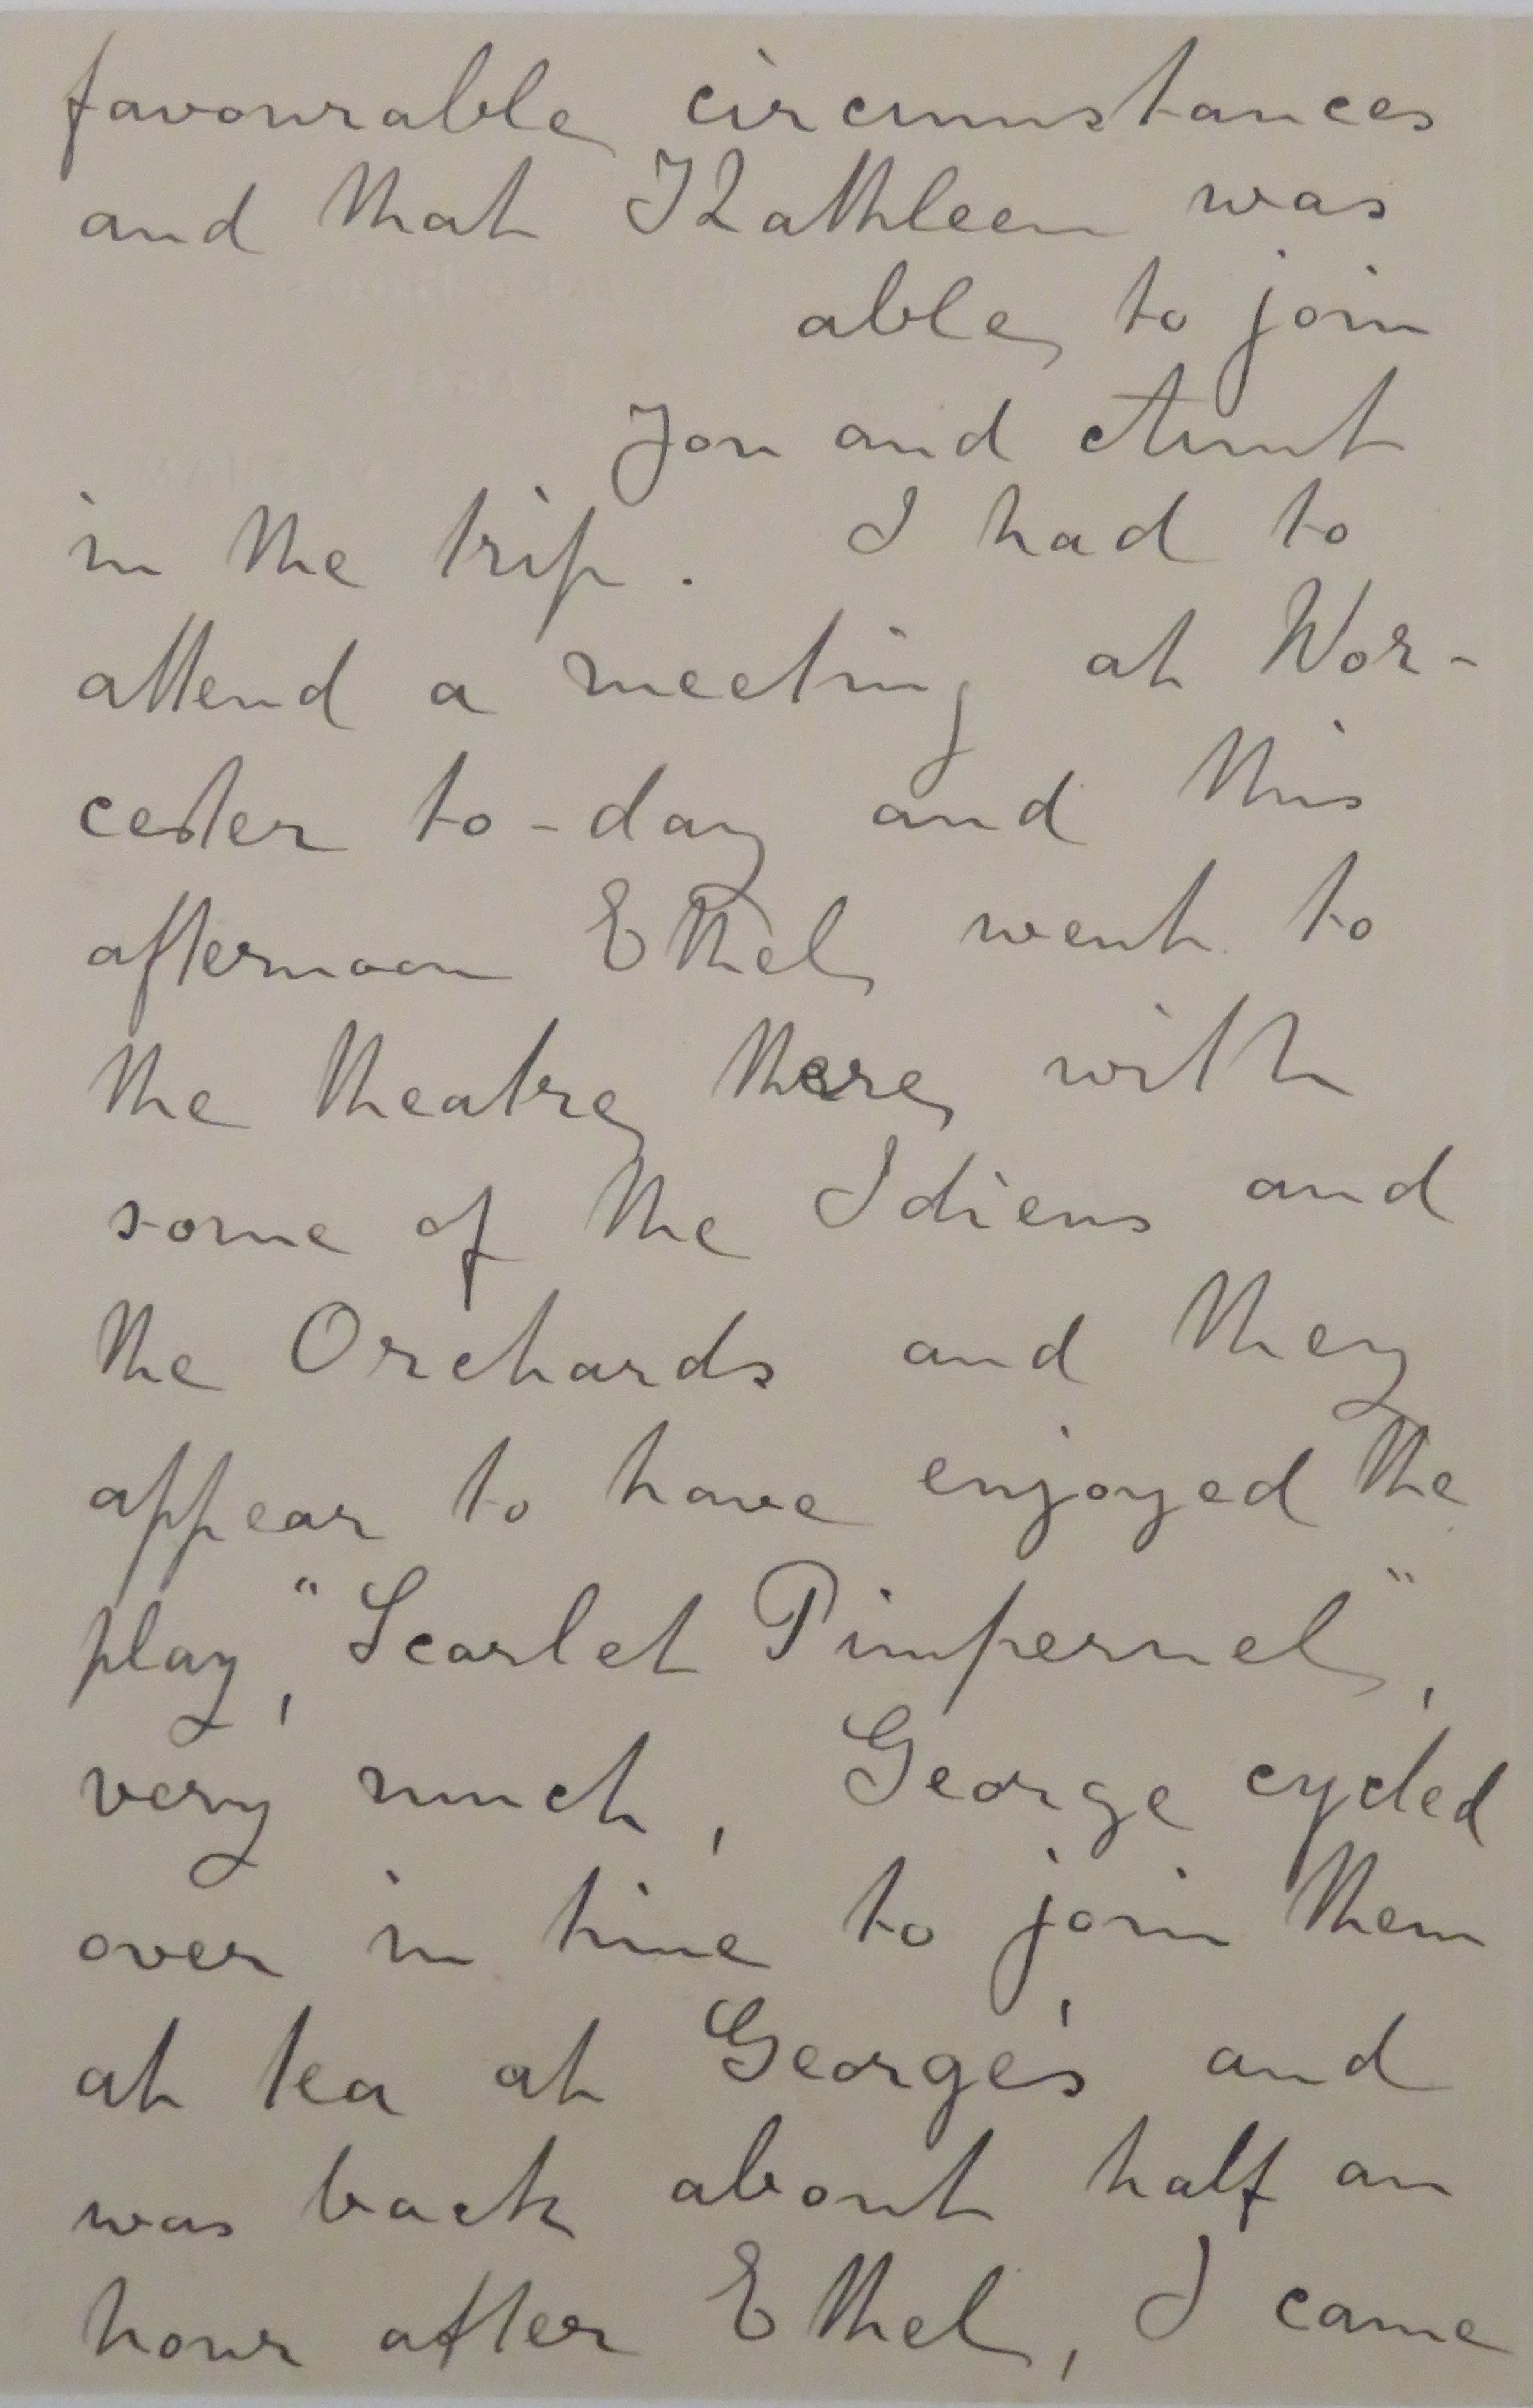 favourable circumstances
and that Kathleen was
able to join
you and Aunt
in the trip. I had to
attend a meeting at Wor-
cester to-day and this
afternoon Ethel went to
the theatre there with
some of the Idiens and
the Orchards and they
appear to have enjoyed the
play, "Scarlet Pimpernel",
very much, George cycled
over in time to join them
at tea at George's and
was back about half an
hour after Ethel, I came